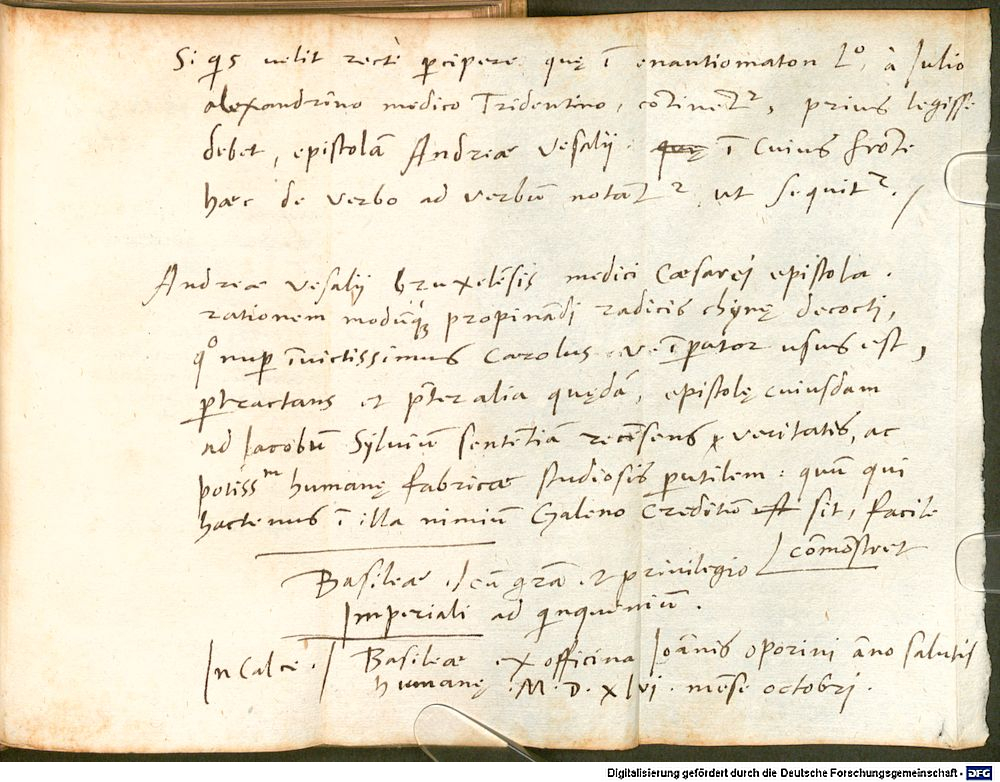 Si q̃s uelit rectè ꝑcipere quę ĩ enantiomaton Lº, à Iulio
alexandrino medico Tridentino, cõtinent̃ᷣ, prius legisse
debet, epistolã Andreæ Vesalij. quę ĩ Cuius frõte
hæc de verbo ad verbũ notãtᷣ, ut sequitᷣ. /
Andreæ Vesalij bruxelẽsis medici Cæsarej epistola.
rationem modũq̃ propinãdi radicis chỳnę decocti,
qº nuꝑ ĩuictissimus Carolus .V. ĩꝑator usus est,
ꝑtractans et p̃ter alia quędã, epistolę cuiusdam
ad Iacobũ Sylviũ sentẽtiã recẽsens, veritatis, ac
potissᵐ humanę fabricæ studiosis ꝑutilem: quũ qui
hactenus ĩ illa nimiũ Galeno Creditũ sit, facile
cõmõstret
Basileæ ./ cũ grã. et privilegio
Imperiali ad q̃nqueniũ.
In Calce. / Basileæ ex officina Ioãnis Oporini ãno salutis
humanę .M.D.xlvi. mẽse octobri.
Digitalisierung gefördert durch die Deutsche Forschungsgemeinschaft - DFG